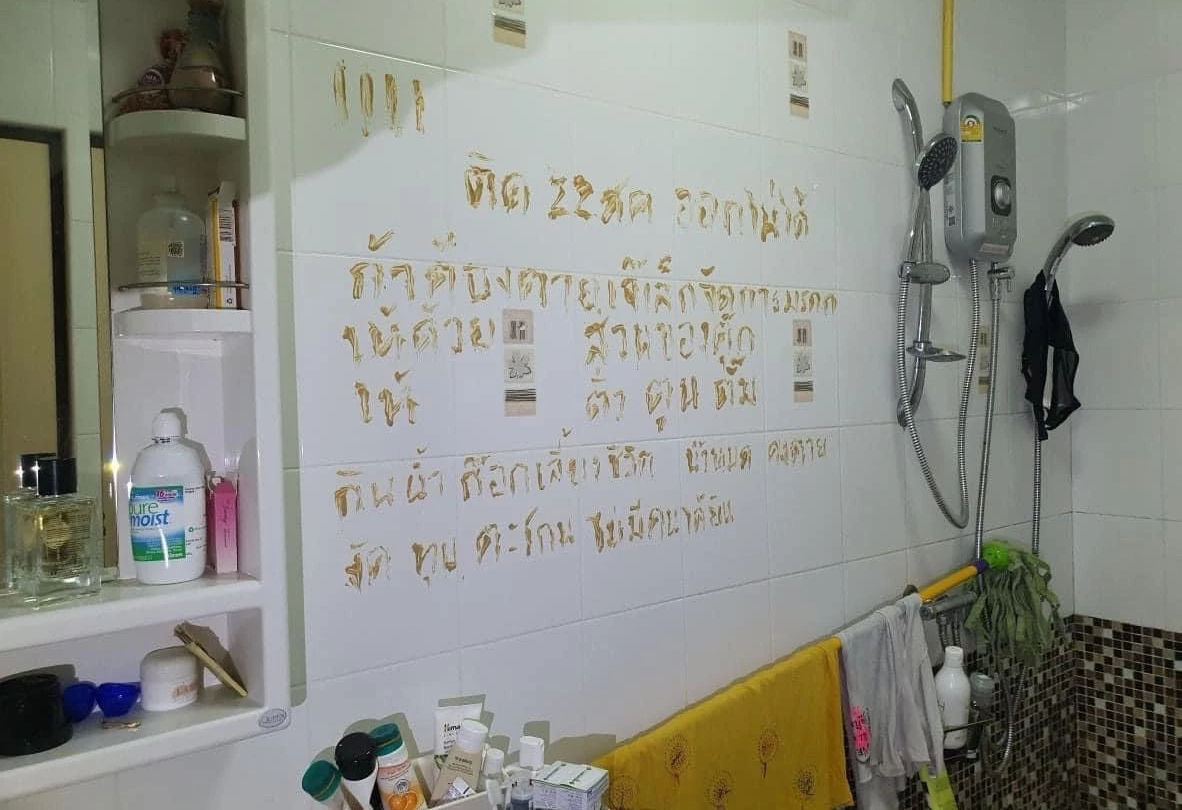 ติด 22สค ออกไม่ได้
ถ้าต้องตาย,เจ๊เล็กจัดการมรดก
ให้ด้วย ส่วนของตุ๊ก
ให้ ติ๋ว ตูน ตั้ม
กินน้ำ ก๊อกเลี้ยงชีวิต น้ำหมด คงตาย
งัด ทุบ ตะโกน ไม่มีคนได้ยิน
pure
moist